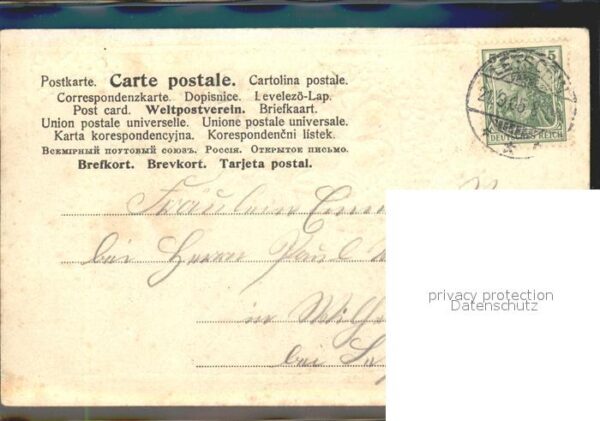 Postkarte. Carte postale. Cartolina postale.
Correspondenzkarte. Dopisnice. Levelező-Lap.
Post card. Weltpostverein. Briefkaart.
Union postale universelle. Unione postale universale.
Karta korespondencyjna. Korespondenční lístek.
Всемірный поутовый союзъ. Россія. Открытое письмо.
Brefkort. Brevkort. Tarjeta postal.
5
DEUTSCHES REICH
Fräulein
bei Herrn Paul
in
bei
privacy protection
Datenschutz